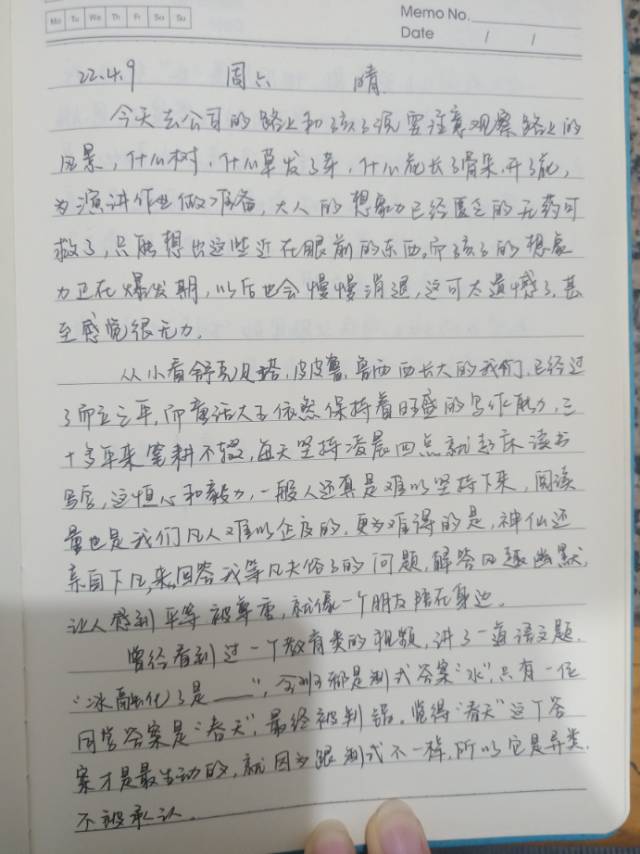 Mo Tu We Th Fr Sa Su
Memo No.
Date / /
22.4.9 周六 晴
今天去公司的路上和孩子说要注意观察路上的
风景，什么树，什么草发了芽，什么花长了骨朵，开了花，
为演讲作业做准备，大人的想象力已经匮乏的无药可
救了，只能想出这些近在眼前的东西。而孩子的想象
力正在爆发期，以后也会慢慢消退，这可太遗憾了，甚
至感觉很无力。
从小看舒克贝塔，皮皮鲁，鲁西西长大的我们，已经过
了而立之年，而童话大王依然保持着旺盛的写作能力，三
十多年来笔耕不辍，每天坚持凌晨四点就起床读书
写字，这恒心和毅力，一般人还真是难以坚持下来，阅读
量也是我们凡人难以企及的，更为难得的是，神仙还
亲自下凡，来回答我等凡夫俗子的问题，解答风趣幽默，
让人感到平等被尊重，就像一个朋友陪在身边。
曾经看到过一个教育类的视频，讲了一道语文题，
“冰融化了是___”，都是制式答案“水”，只有一位
同学答案是“春天”，最终被判错。觉得“春天”这个答
案才是最生动的，就因为跟制式不一样，所以它是异类，
不被承认。